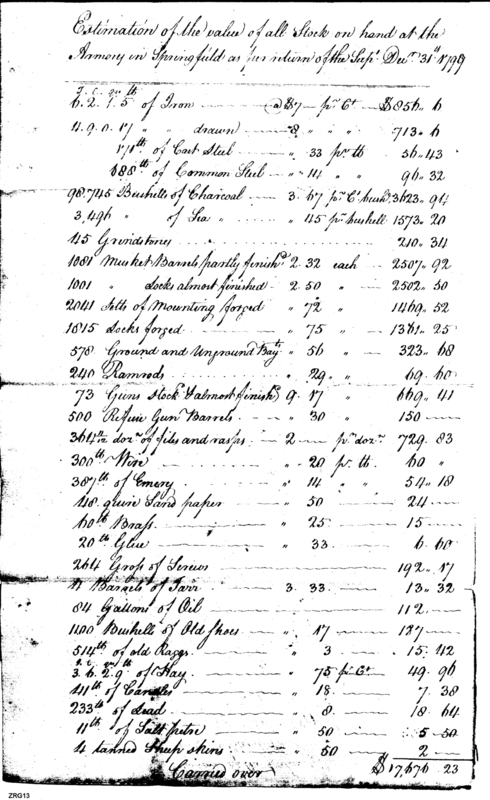 Estimation of the value of all Stock on hand at the
Armory in Springfield as per return of the Supt. Decr. 31st 1799
T. C. qrs lb
6. 2. 1. 5 of Iron @ $7 pr. Ct $856 " 6
4. 9. 0. 17 " " drawn 8 " " 713 " 6
171 lb of Cast Steel " 33 pr lb 56 " 43
688 lb of Common Steel " 14 " " 96 " 32
98,745 Bushells of Charcoal 3. 67 pr. Ct bush. 3623 " 94
3,496 " of Sea " " 45 pr. bushell 1573 " 20
145 Grindstones 210 " 34
1081 Musket Barrels partly finishd 2. 32 each 2507 " 92
1001 " Locks almost finished 2. 50 " 2502 " 50
2041 Setts of Mounting forged " 72 " 1469 " 52
1815 Locks forged " 75 " 1361 " 25
578 Ground and Unground Bayts " 56 " 323 " 68
240 Ramrods " 29 " 69 " 60
73 Guns Stockd & almost finishd 9. 17 " 669 " 41
500 Refuse Gun Barrels " 30 " 150
dozn of files and rasps 2 pr. dozn 729 " 83
300 lb Wire " 20 pr. lb 60 "
387 lb of Emery " 14 " " 54 " 18
48 quire Sand paper " 50 24
60 lb Brass " 25 15
20 lb Glue " 33 6 " 60
264 Gross of Screws 192 " 17
4 Barrels of Tarr 3. 33 13 " 32
84 Gallons of Oil 112
Bushells of Old Shoes " 17
514 lb of old Raggs " 3 15 " 42
T. C. qrs lb
3. 6. 2. 9 of Hay " 75 pr. Ct 49 " 96
41 lb of Candles " 18 7 " 38
233 lb of Lead " 8 18 " 64
11 lb of Salt petre " 50 5 " 50
4 tanned Sheep skins " 50 2
Carried over $17,676 " 23
ZRG13